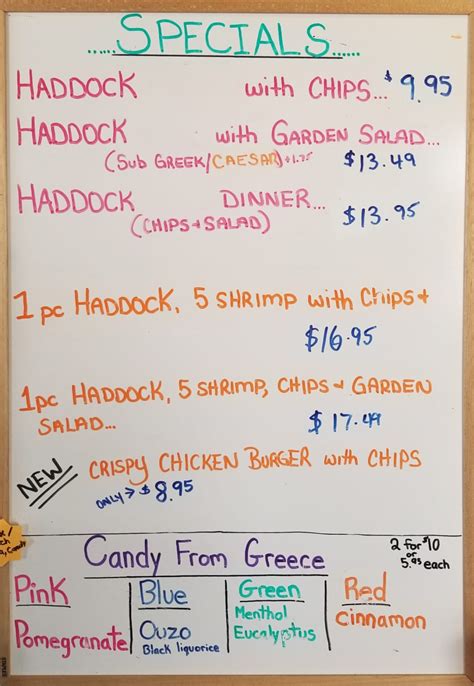 ......SPECIALS......
HADDOCK with CHIPS... $9.95
HADDOCK with GARDEN SALAD...
(SUB GREEK/CAESAR)+1.75 $13.49
HADDOCK DINNER...
(CHIPS+SALAD) $13.95
1 pc HADDOCK, 5 SHRIMP with Chips+
$16.95
1pc HADDOCK, 5 SHRIMP, CHIPS + GARDEN
SALAD... $17.49
NEW CRISPY CHICKEN BURGER with CHIPS
ONLY→$8.95
Candy From Greece
2 for $10
or
5.95 each
Pink Blue Green Red
Pomegranate Ouzo Menthol Cinnamon
Black liquorice Eucalyptus